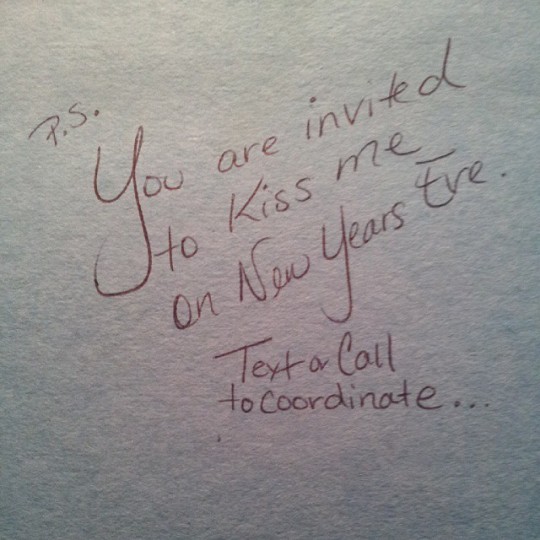 P.S.
You are invited
to Kiss me
on New Years Eve.
Text or Call
to coordinate...